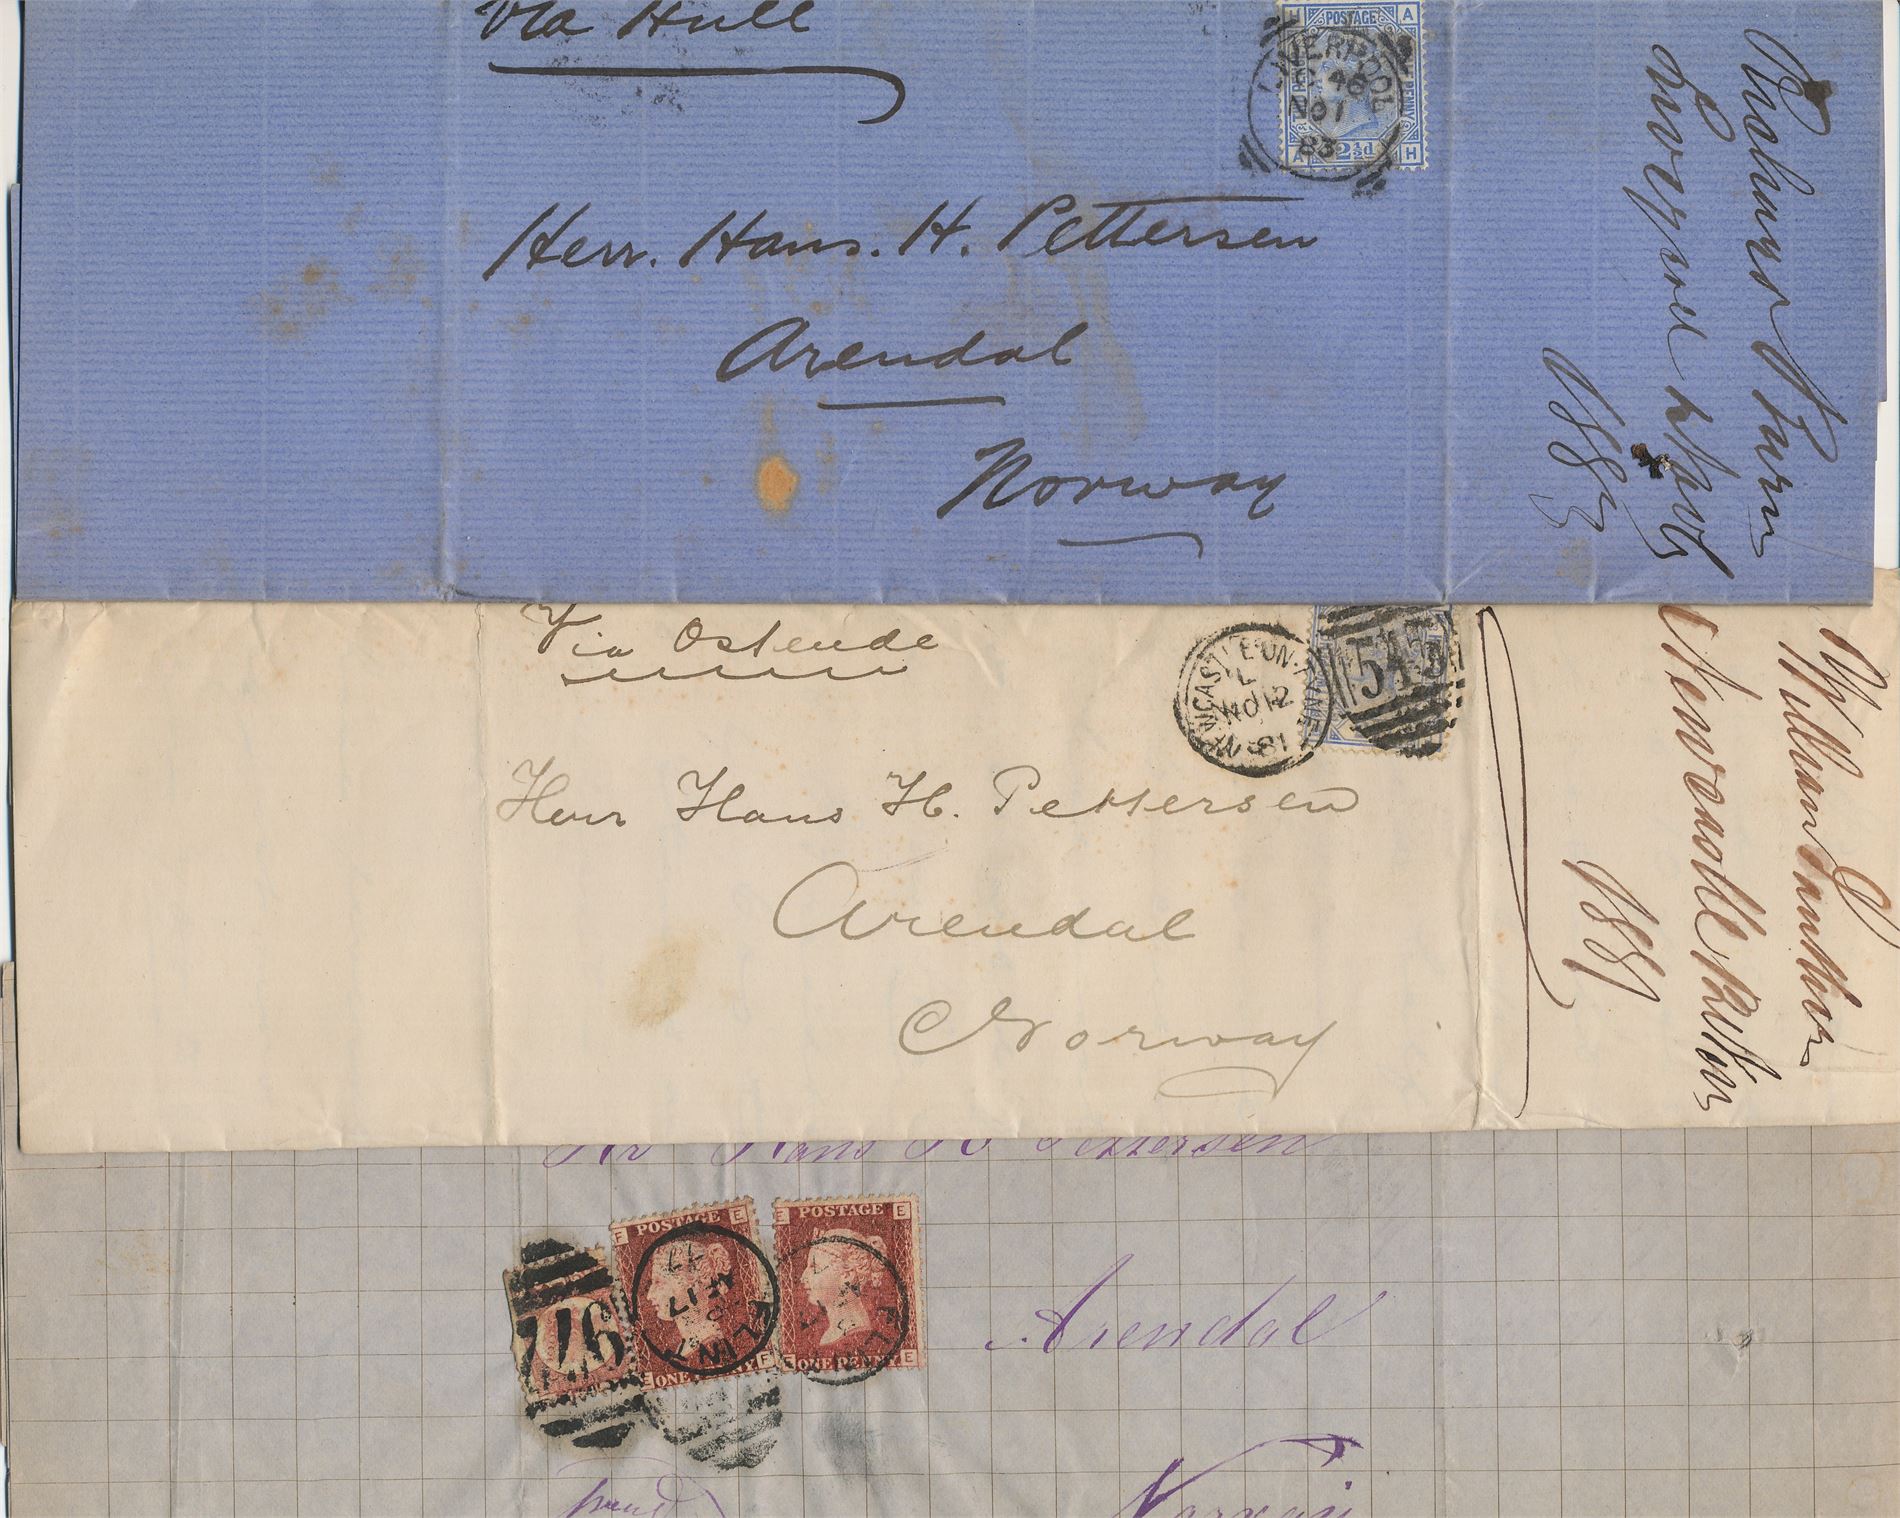 Via Hull
H POSTAGE A
PENNY
LIVERPOOL
48
NO 1
83
A 2½d H
Herr. Hans. H. Pettersen
Arendal
Norway
Liverpool
1883
Via Ostende
NEWCASTLE-ON-TYNE
L
NO 12
81
545
Herr Hans H. Pettersen
Arendal
Norway
William
Newcastle
1881
Hr Hans H Pettersen
F POSTAGE E
E POSTAGE E
17
77
E ONE PENNY F
E ONE PENNY E
Arendal